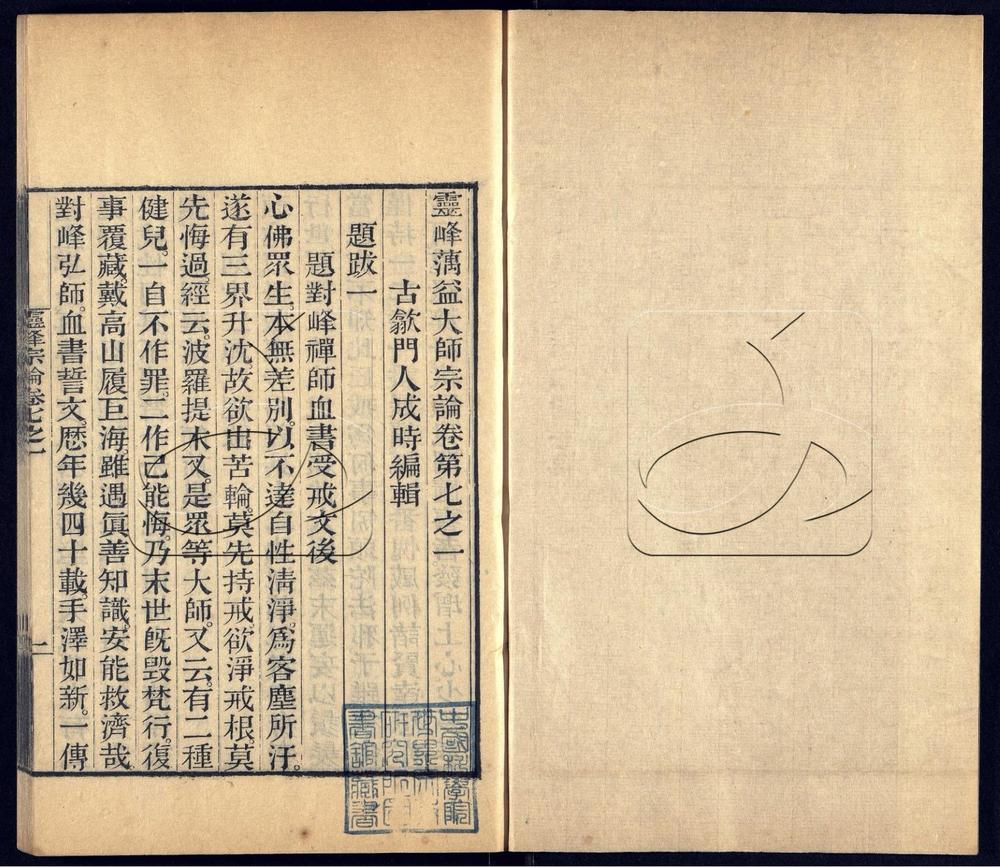 靈峰蕅益大師宗論卷第七之一
古歙門人成時編輯
題跋一
題對峰禪師血書受戒文後
心佛眾生。本無差別。以不達自性清淨。爲客塵所汙。
遂有三界升沈。故欲出苦輪。莫先持戒。欲淨戒根。莫
先悔過。經云。波羅提木叉。是眾等大師。又云。有二種
健兒。一自不作罪。一作已能悔。乃末世旣毀梵行。復
事覆藏。戴高山履巨海。雖遇眞善知識。安能救濟哉。
對峰弘師。血書誓文。歷年幾四十載。手澤如新。一傳
靈峰宗論卷七之一
一